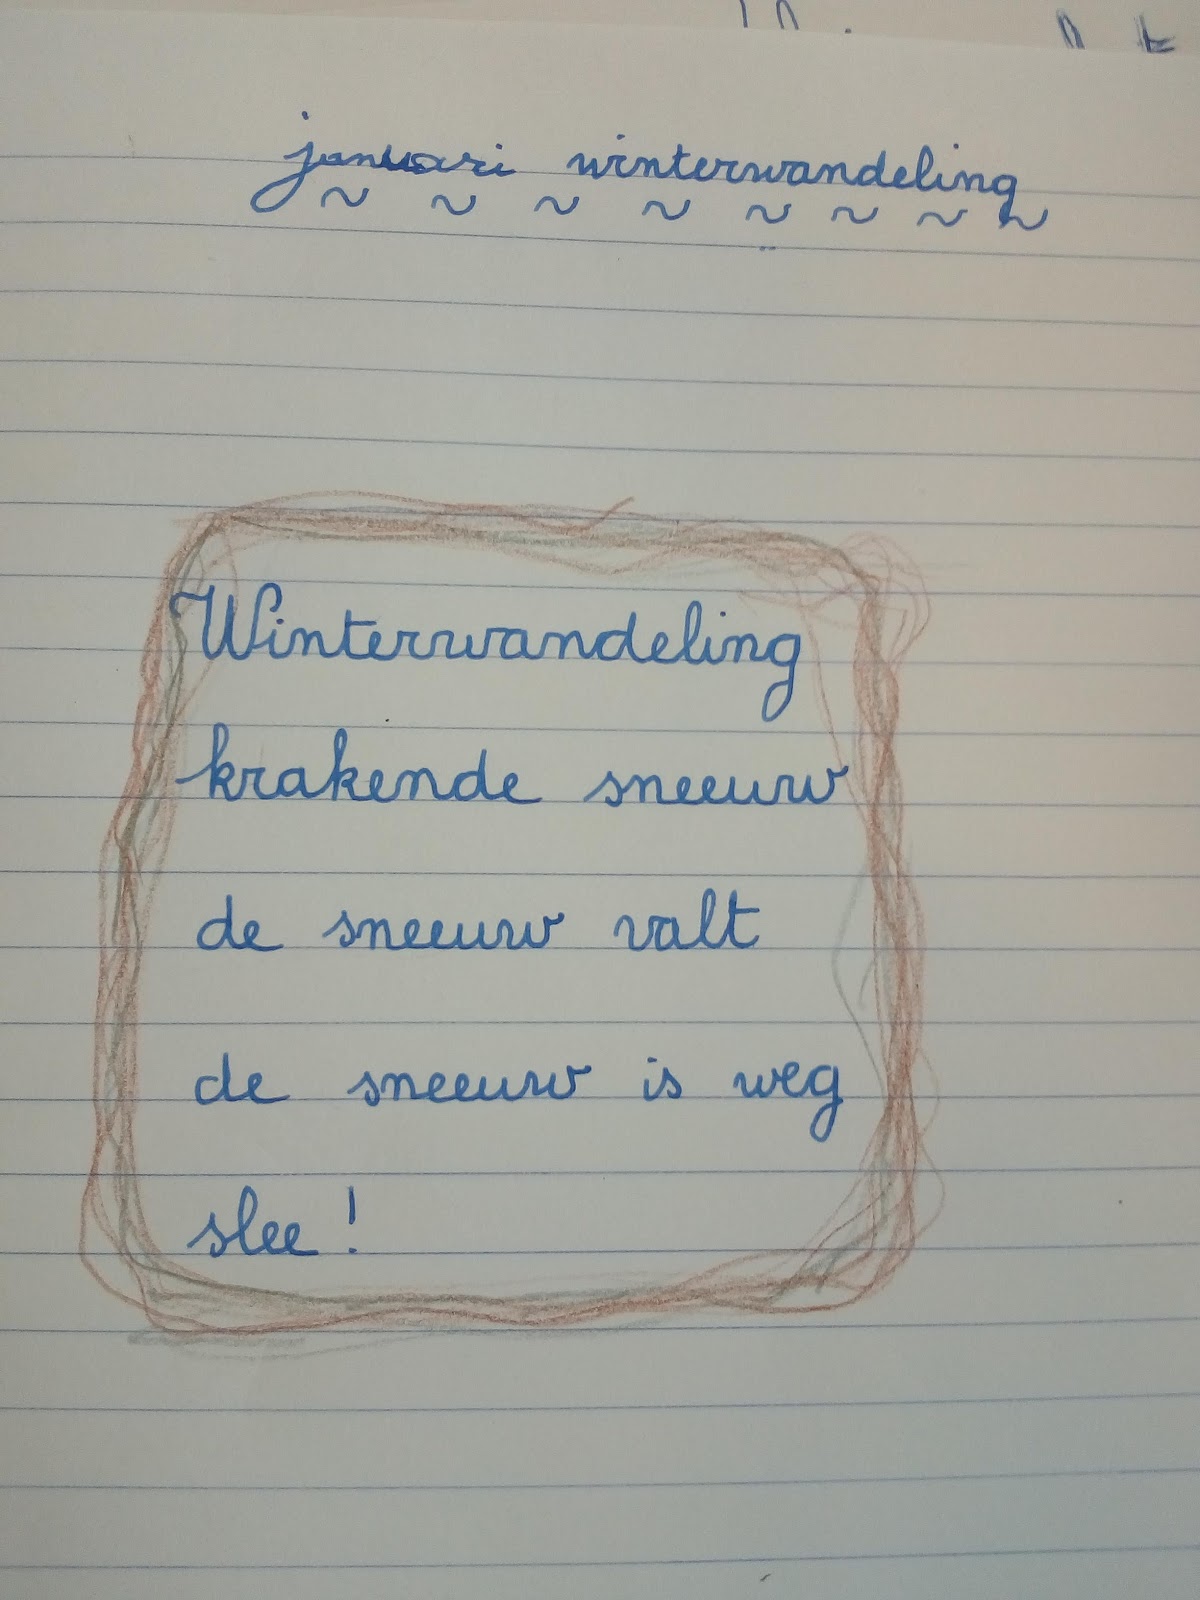 januari winterwandeling
Winterwandeling
krakende sneeuw
de sneeuw valt
de sneeuw is weg
slee!